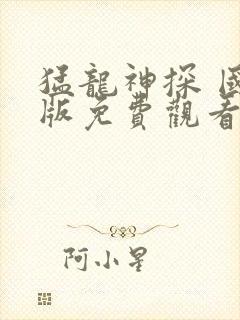 猛龍神探 國
版免費觀看
阿小星